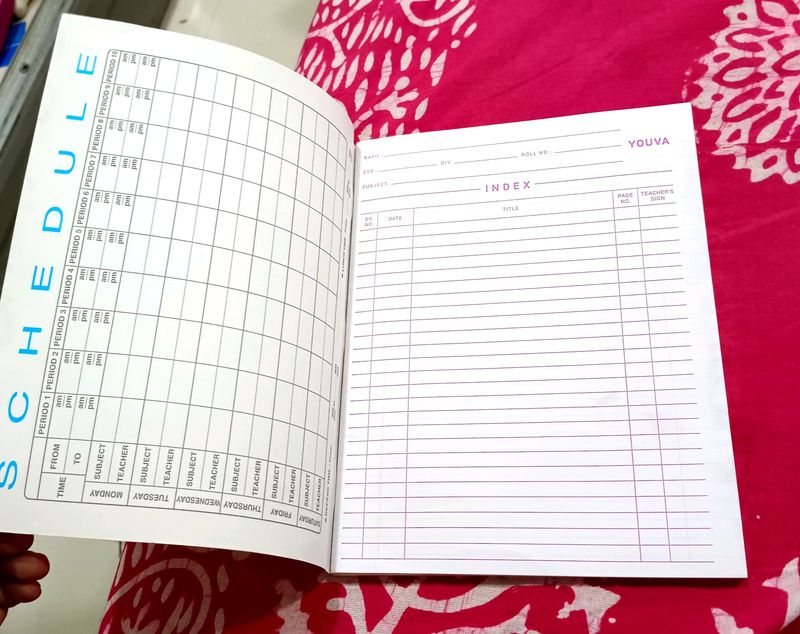 SCHEDULE
TIME FROM TO
PERIOD 1 am pm am pm
PERIOD 2 am pm am pm
PERIOD 3 am pm am pm
PERIOD 4 am pm am pm
PERIOD 5 am pm am pm
PERIOD 6 am pm am pm
PERIOD 7 am pm am pm
PERIOD 8 am pm am pm
PERIOD 9 am pm am pm
PERIOD 10 am pm am pm
MONDAY SUBJECT TEACHER
TUESDAY SUBJECT TEACHER
WEDNESDAY SUBJECT TEACHER
THURSDAY SUBJECT TEACHER
FRIDAY SUBJECT TEACHER
SATURDAY SUBJECT TEACHER
NAME
STD. DIV. ROLL NO.
YOUVA
SUBJECT
INDEX
SR. NO. DATE TITLE PAGE NO. TEACHER'S SIGN